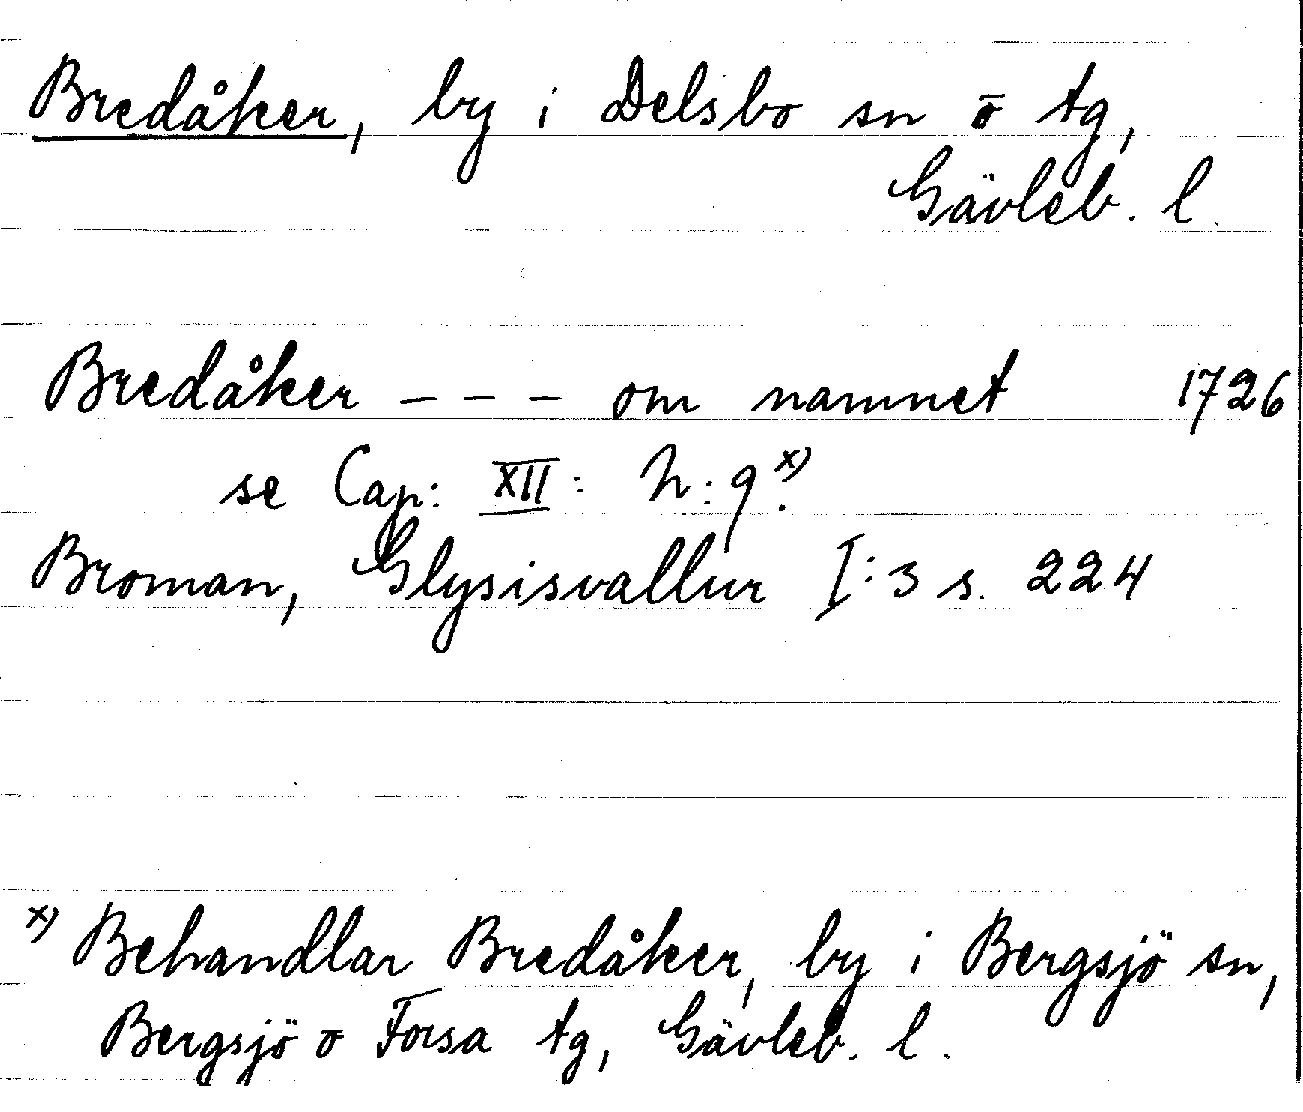 Bredåker, by i Delsbo sn o tg,
Gävleb. l.
Bredåker --- om namnet 1726
se Cap: XII: h: 9.x)
Broman, Glysisvallur I:3 s. 224
x) Behandlar Bredåker, by i Bergsjö sn,
Bergsjö o Forsa tg, Gävleb. l.